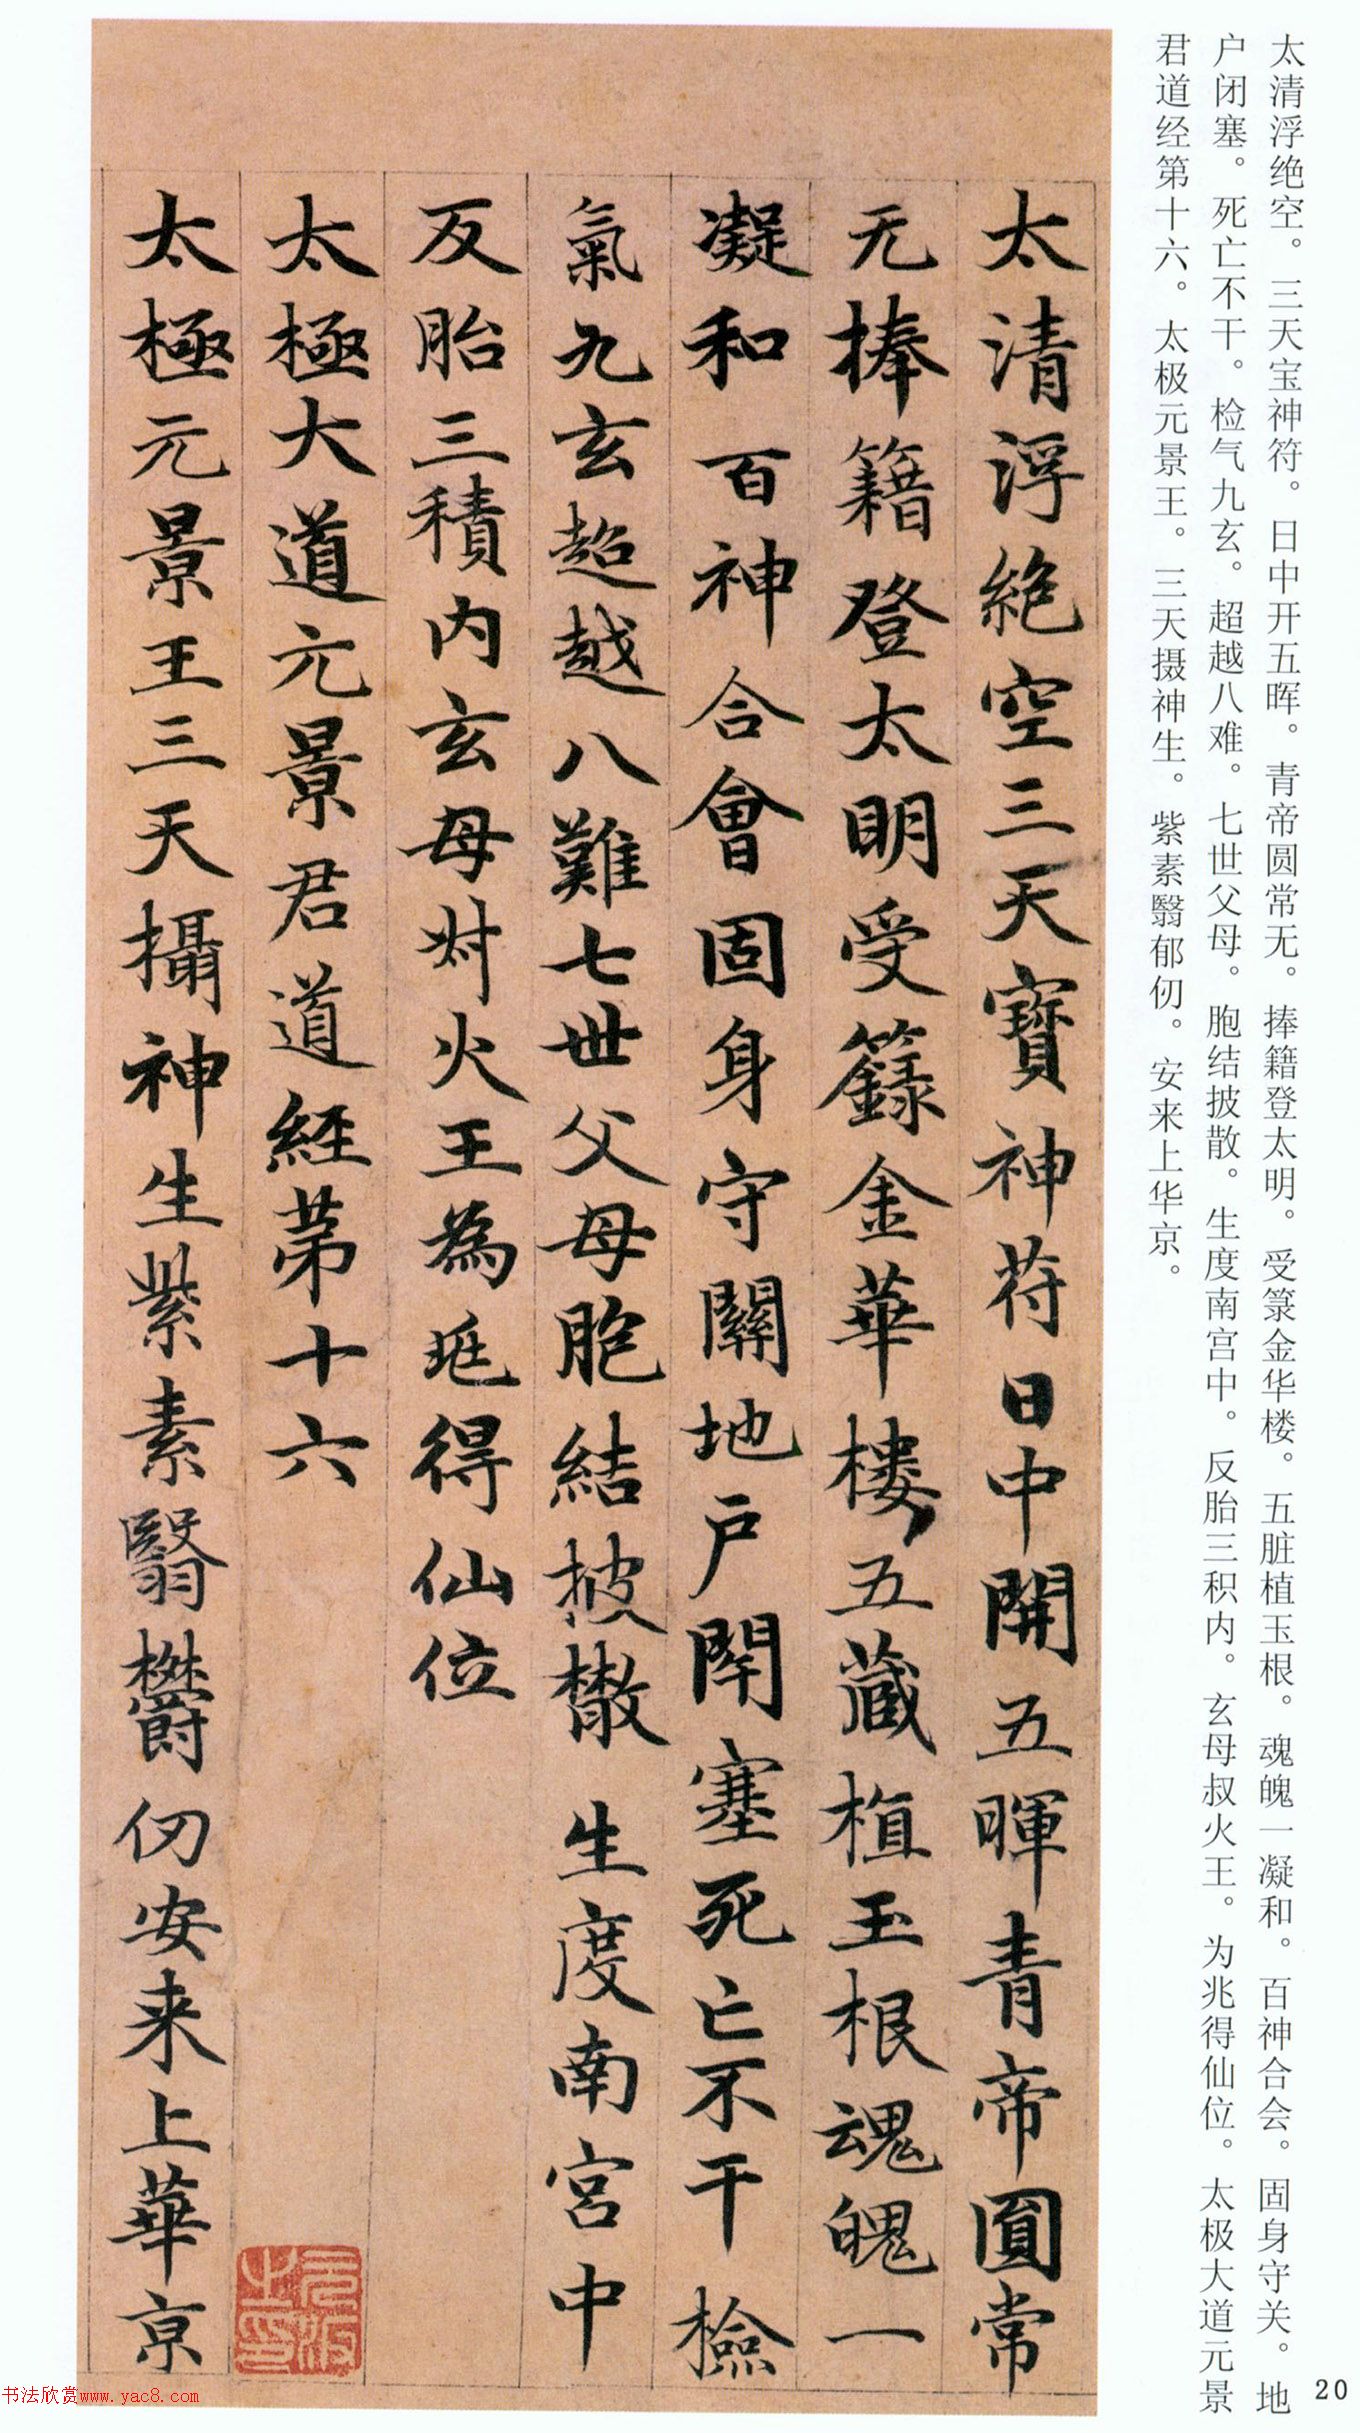 太清浮绝空。三天宝神符。日中开五晖。青帝圆常无。捧籍登太明。受箓金华楼。五脏植玉根。魂魄一凝和。百神合会。固身守关。地
户闭塞。死亡不干。检气九玄。超越八难。七世父母。胞结披散。生度南宫中。反胎三积内。玄母叔火王。为兆得仙位。太极大道元景
君道经第十六。太极元景王。三天摄神生。紫素翳郁仞。安来上华京。
太清浮絕空三天寶神符日中開五暉青帝圓常
无捧籍登太明受籙金華樓五藏植玉根魂魄一
凝和百神合會固身守關地户閇塞死亡不干檢
氣九玄超越八難七世父母胞結披散生度南宮中
反胎三積内玄母叔火王為兆得仙位
太極大道元景君道經第十六
太極元景王三天攝神生紫素翳欝仞安来上華京
20
书法欣赏www.yac8.com